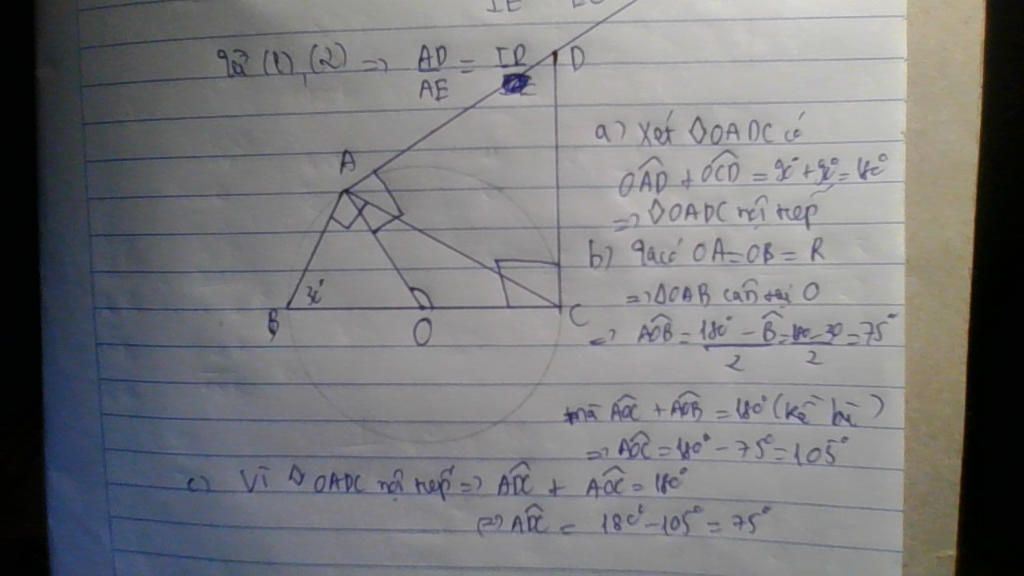 Từ (1), (2) => AD/AE = ID/
D
A
a) Xét ◇OADC có
OÂD + OĈD = 90° + 90° = 180°
=> ◇OADC nội tiếp
b) Ta có OA = OB = R
=> ΔOAB cân tại O
=> AÔB = (180° - B̂)/2 = (180 - 30)/2 = 75°
30°
B
O
C
mà AÔC + AÔB = 180° (kề bù)
=> AÔC = 180° - 75° = 105°
c) Vì ◇OADC nội tiếp => AD̂C + AÔC = 180°
(=) AD̂C = 180° - 105° = 75°